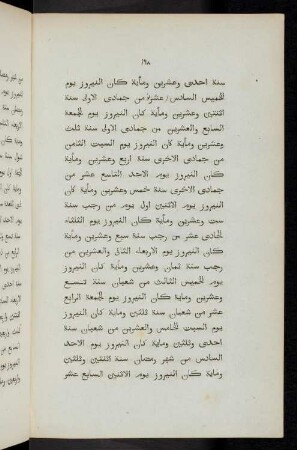 ١٩٨
سنة احدى وعشرين وماية كان النيروز يوم
الخميس السادس عشر من جمادى الاولى سنة
اثنتين وعشرين وماية كان النيروز يوم الجمعة
السابع والعشرين من جمادى الاولى سنة ثلث
وعشرين وماية كان النيروز يوم السبت الثامن
من جمادى الاخرى سنة اربع وعشرين وماية
كان النيروز يوم الاحد التاسع عشر من
جمادى الاخرى سنة خمس وعشرين وماية كان
النيروز يوم الاثنين اول يوم من رجب سنة
ست وعشرين وماية كان النيروز يوم الثلثاء
الحادى عشر من رجب سنة سبع وعشرين وماية
كان النيروز يوم الاربعاء الثانى والعشرين من
رجب سنة ثمان وعشرين وماية كان النيروز
يوم الخميس الثالث من شعبان سنة تسع
وعشرين وماية كان النيروز يوم الجمعة الرابع
عشر من شعبان سنة ثلثين وماية كان النيروز
يوم السبت الخامس والعشرين من شعبان سنة
احدى وثلثين وماية كان النيروز يوم الاحد
السادس من شهر رمضان سنة اثنتين وثلثين
وماية كان النيروز يوم الاثنين السابع عشر